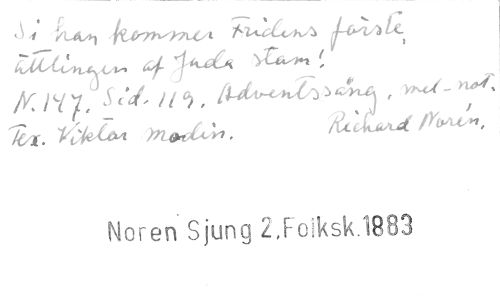 Si han kommer Fridens förste,
ättlingen af Juda stam!
N. 147. Sid. 119. Adventssång. mel-not.
Tex. Viktor Modin. Richard Norén.
Noren Sjung 2.Folksk.1883